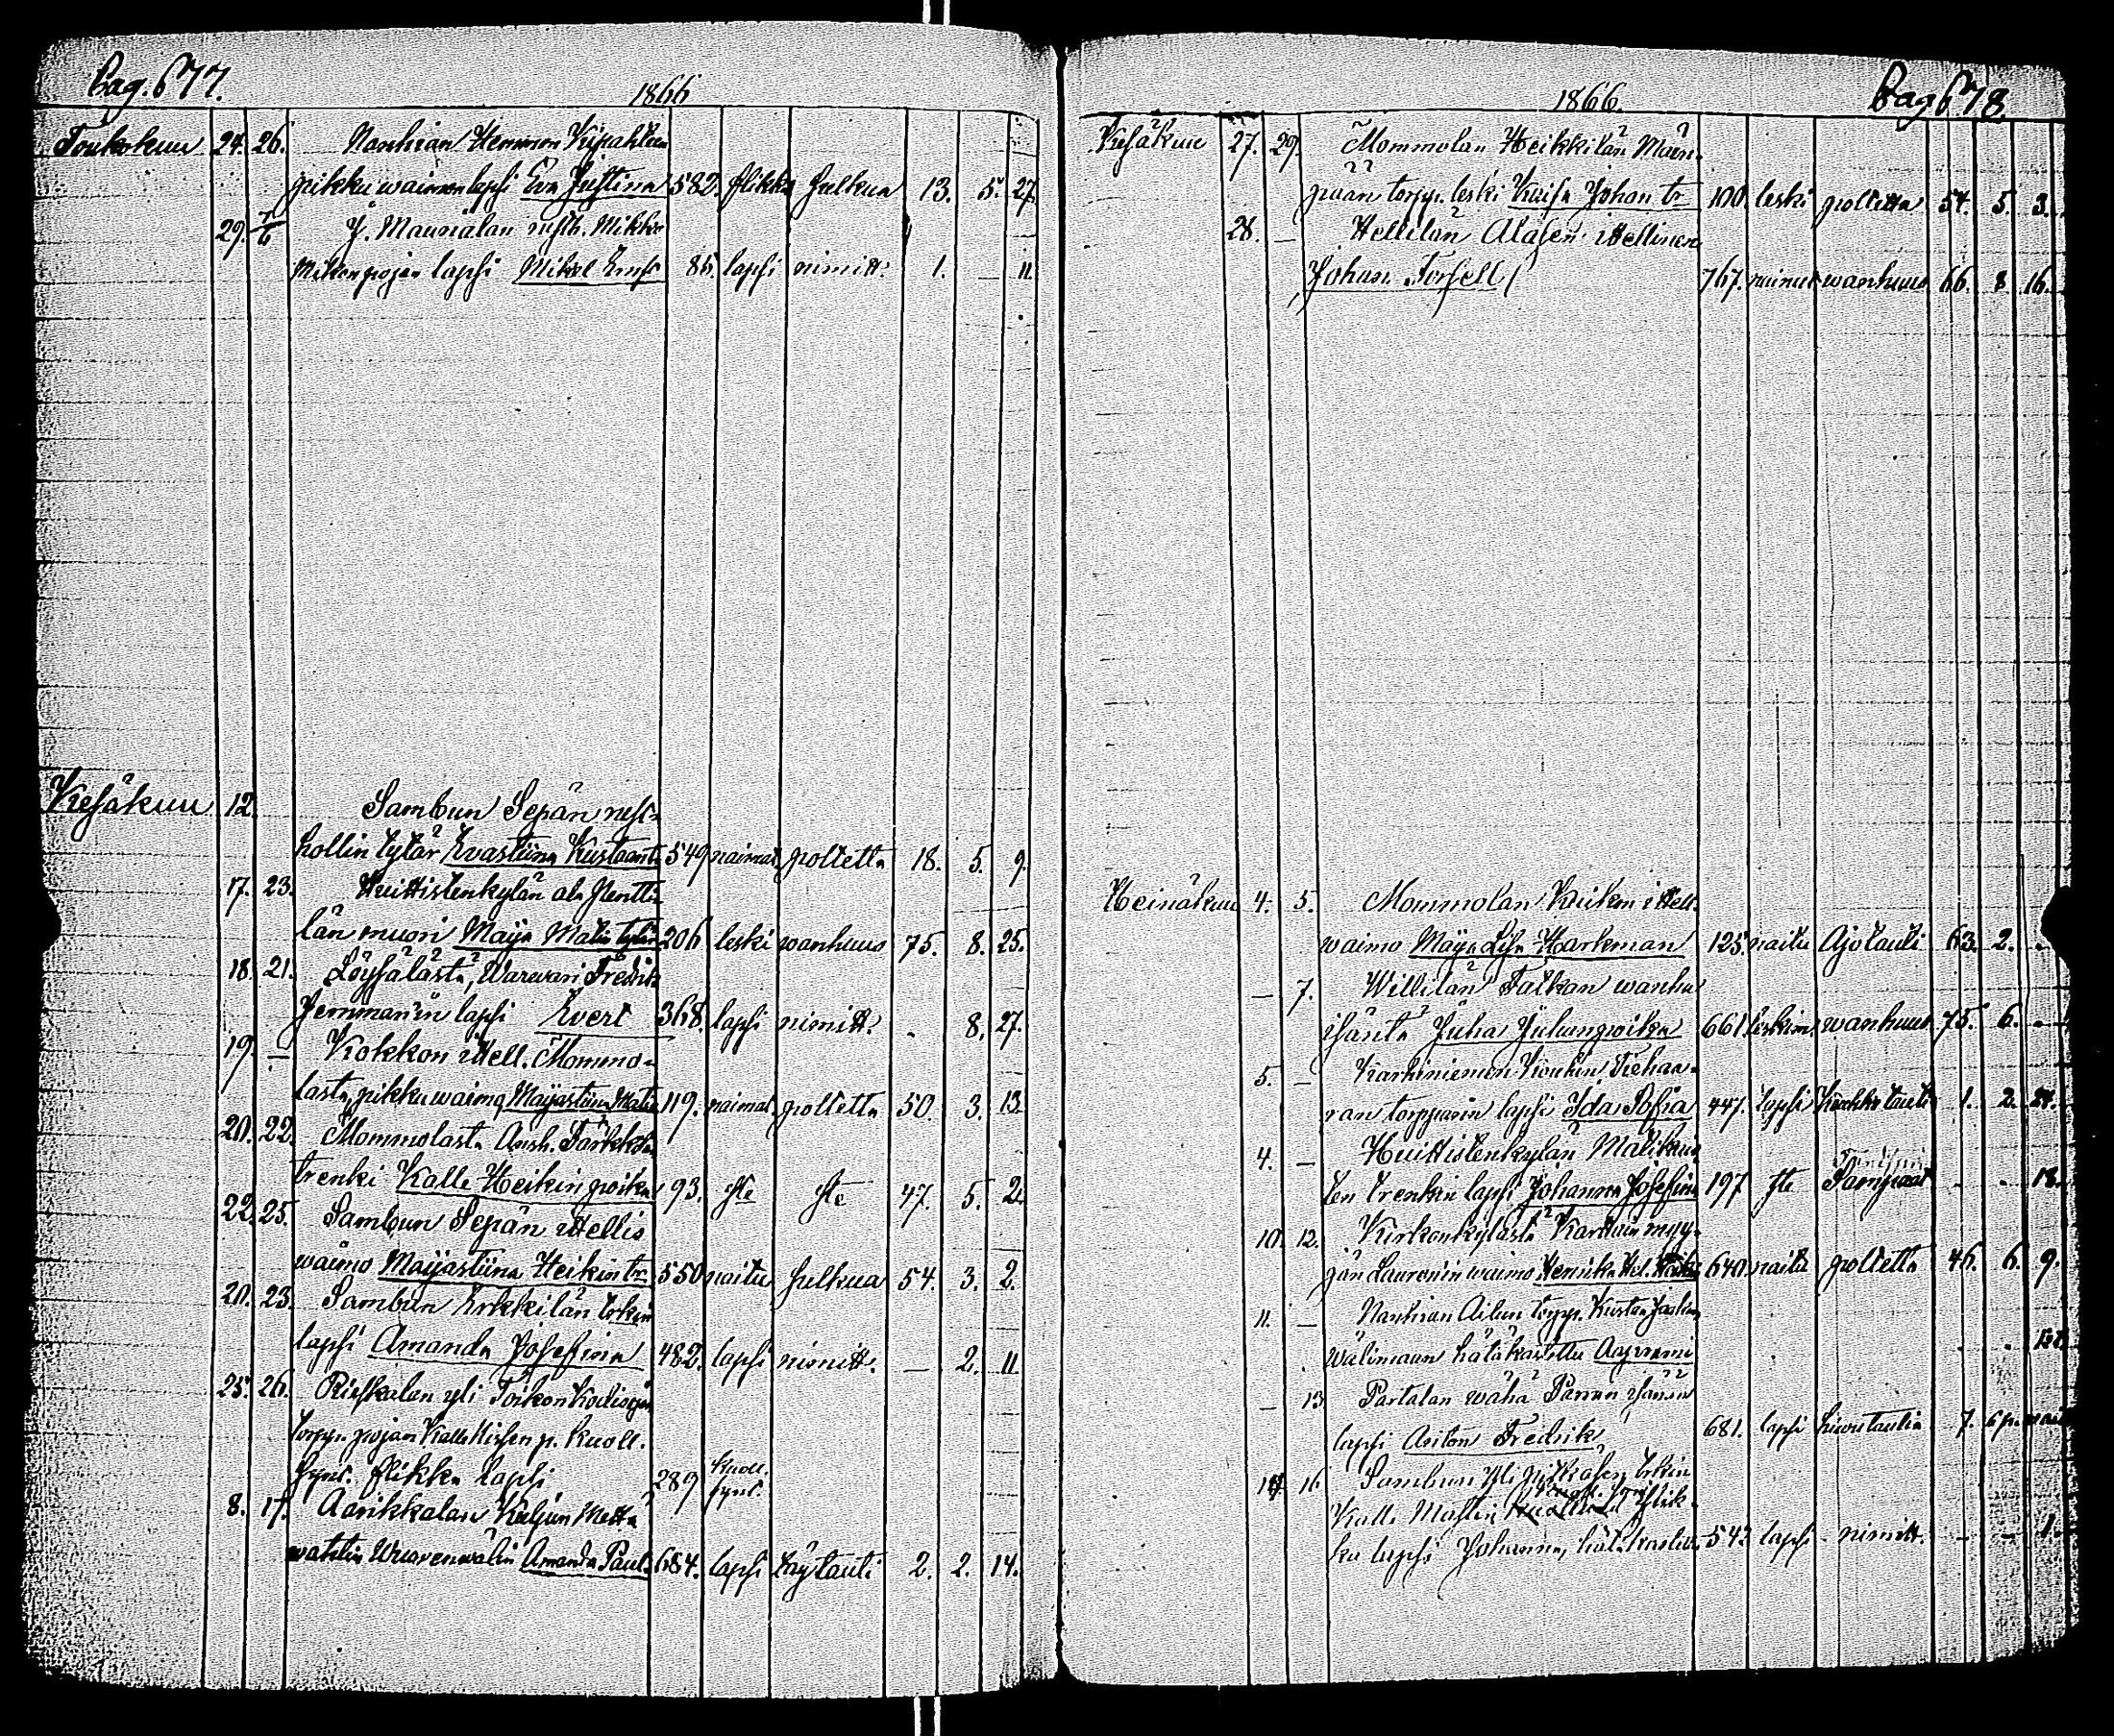 Pag. 677.
1866
Toukokuu 24. 26. Nanhian Hemmon Kipahteen
pikku waimon lapsi Eva Justina 582. flikka sulkua 13. 5. 27.
29. 1/6 Y. Mauriälan rusth. Mikko
Mikonpojan lapsi Mikel Ernst 85. lapsi nimitt. 1. — 11.
Kesäkuu 12. Sambun Sepän rust-
hollin tytär Evastiina Kustaant. 549 naimat. poltetta 18. 5. 9.
17. 23. Huittistenkylän ala Penttilän
län muori Maija Matin tytär 206 leski wanhuus 75. 8. 25.
18. 21. Löysälästä, Warwari Fredrik
Jernman'in lapsi Evert 368. lapsi nimitt. - 8. 27.
19. — Kokkon itsell. Mommo-
lasta, pikku waimo Maijastiina Matin 119. naimat. poltetta 50. 3. 13
20. 22. Mommolasta Ansh. Tärkkön
trenki Kalle Heikinpoika 93. ste ste 47. 5. 2.
22. 25. Sambun Sepän itsellis
waimo Maijastiina Heikin tr. 550 naitu sulkua 54. 3. 2.
20. 23. Sambun Erkkilän Erkin
lapsi Amanda Josefina 482. lapsi nimitt. — 2. 11.
25. 26. Rieskalan yli Toikon
torpp. pojan Kalle p. kuoll.
synt. flikka lapsi 289 kuoll. synt.
8. 17. Aarikkalan Kuljun Mettä
wahtin Amanda Paul. 684. lapsi Täytauti 2. 2. 14.
1866.
Pag 678.
Kesäkuu 27. 29. Mommolan Heikkilän Mäen-
pään torpp. leski Kaisa Johan tr 100. leski poltetta 54. 5. 3.
28. — Hellilän Alasen itsellinen
Johan Forsell 767. nainut wanhuus 66. 8. 16.
Heinäkuu 4. 5. Mommolan itsell.
waimo Maija Lisa Harkman 125. naitu Ajotauti 63. 2. -
— 7. Willilän Talkan wanha
isäntä Juha Juhanpoika 661. leskim. wanhuus 75. 6. —
5. — Karhiniemen
torpparin lapsi Ida Sofia 447. lapsi 1. 2. 24.
4. — Huittistenkylän
ten trenkin lapsi Johanna Josefina 197 ste - - 18.
10. 12. Kirkonkylästä myy-
jän Lauren'in waimo Henrika Hel. 640. naitu poltetta 46. 6. 9.
11. — Nanhian torpp. Kustaa
Wälimaan hätäkastettu - -
— 13 Partalan wähä isännän
lapsi Anton Fredrik 681. lapsi 7.
14 16. Sambun yli Erkin
Kalle Mattin kuoll. flik-
ka lapsi Johanna, hätäkastettu 542 lapsi nimitt. - - 1.